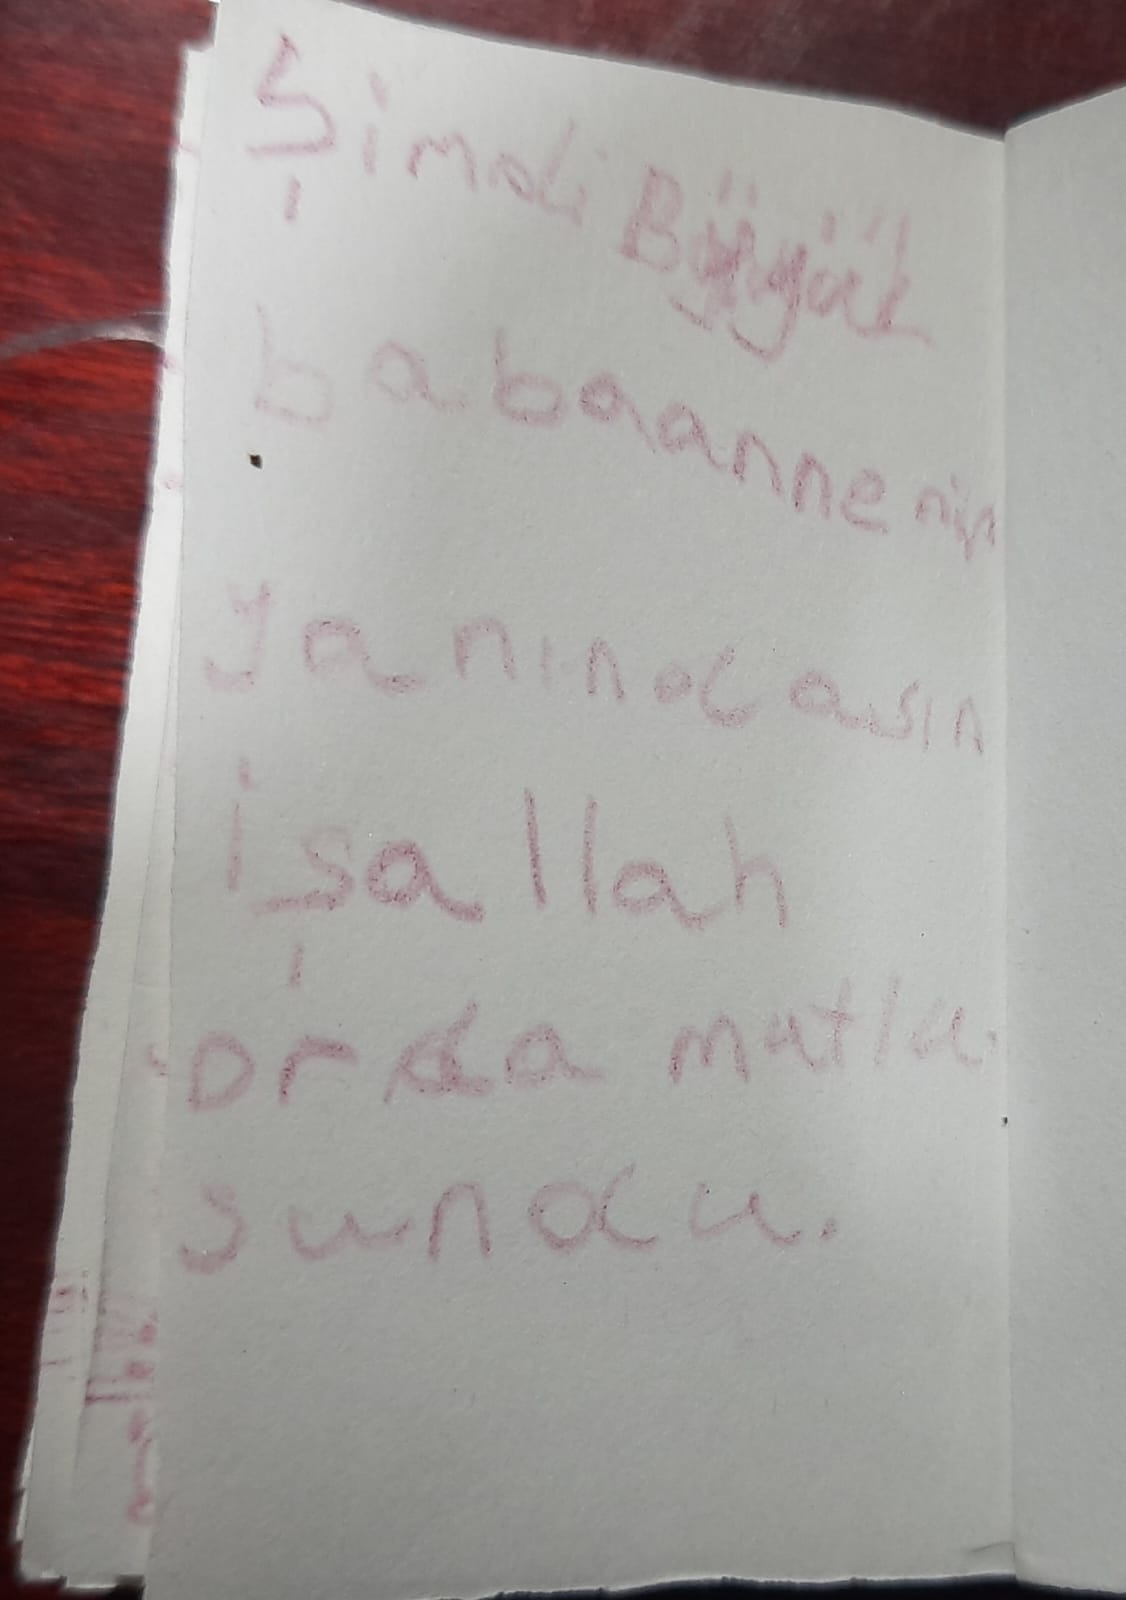 Şimdi Büyük
babaannenin
Yanındasın
İşallah
orda mutlu
sundu.